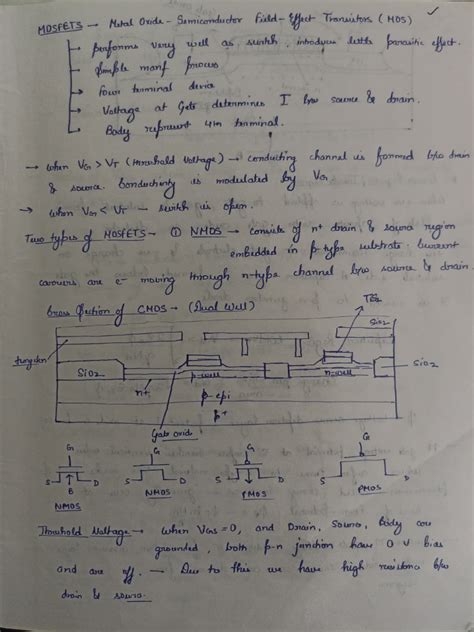 MOSFETS → Metal Oxide - Semiconductor Field-Effect Transistors (MOS)
→ performs very well as switch, introduces little parasitic effect.
→ Simple manf process
→ Four terminal device
→ Voltage at Gate determines I b/w source & drain.
→ Body represent 4th terminal.
→ when VG > VT (threshold voltage) → conducting channel is formed b/w drain
& source. Conductivity is modulated by VG
→ when VG < VT - switch is open.
Two types of MOSFETS - ① NMOS → consists of n+ drain & source region
embedded in p-type substrate, current
carriers are e- moving through n-type channel b/w source & drain
Cross section of CMOS → (Dual Well)
SiO2
tungsten
SiO2
p-well
n-well
SiO2
n+
p-epi
p+
Gate oxide
G G G G
S D S D S D S D
B
NMOS NMOS PMOS PMOS
Threshold Voltage → when VGS = 0, and Drain, Source, body are
grounded, both p-n junction have 0 V bias
and are off. → Due to this we have high resistance b/w
drain & source.